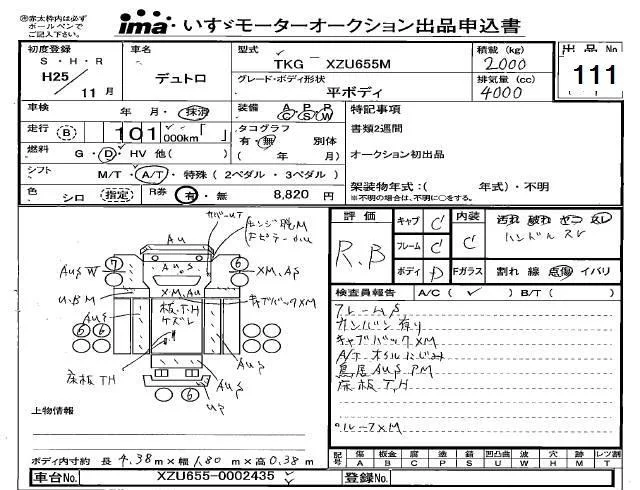 ㊟赤太枠内は必ず
ボールペンで
ご記入下さい。
ima いすゞモーターオークション出品申込書
初度登録 車名 型式 積載 (kg) 出品 No
S・H・R TKG XZU655M 2000 111
H25 デュトロ グレード・ボディ形状 排気量 (cc)
11 月 平ボディ 4000
車検 年 月・抹消 装備 A P P 特記事項
C S W
走行 B 101 000km「 」 タコグラフ 書類2週間
有・無 別体
燃料 G・D・HV 他( ) ( 年 月) オークション初出品
シフト M/T・A/T・特殊 ( 2ペダル ・ 3ペダル )
架装物年式:( 年式)・不明
色 シロ (指定) R券 有・無 8,820 円 ※不明の場合は、不明に○をする。
評価 キャブ C 内装 汚れ 破れ セコ スレ
R.B フレーム C C ハンドル スレ
ボディ D Fガラス 割れ 線 点傷 イバリ
検査員報告 A/C ( ✓ ) B/T ( )
フレームS
カンバン有り
キャブバックXM
A/T オイルにじみ
鳥居AUS PM
床板T,H
ルーフXM
カバーUT
エンジン脱M
AU
7
6
AUSW
AU.S
XM.AS
U.BM
XM.AU
キャブバックXM
AUS
板.T.H
ケズレ
6 6
AUS
床板TH
AUS
6
US
上物情報
ボディ内寸約 長 4.38m×幅 1.80 m×高 0.38 m
記号 傷 板金 腐 塗 錆 凹凸曲 波 穴 跡 レツ割
A B C P S U W H M T
車台No. XZU655-0002435 登録No.